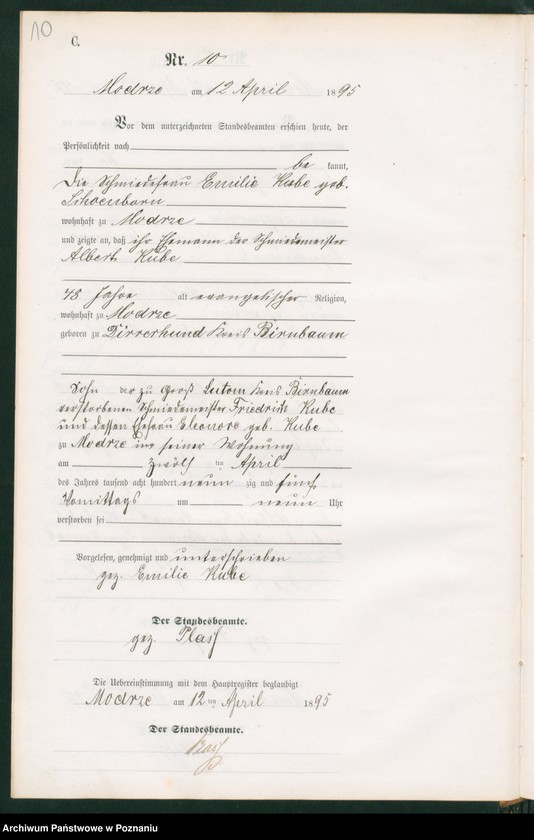 10
C.
Nr. 10
Modrze am 12 April 1895
Vor dem unterzeichneten Standesbeamten erschien heute, der
Persönlichkeit nach
be kannt,
die Schmiedefrau Emilie Kube geb.
Schoenborn
wohnhaft zu Modrze
und zeigte an, daß ihr Ehemann der Schmiedemeister
Albert Kube
48 Jahre alt evangelischer Religion,
wohnhaft zu Modrze
geboren zu Dürrerhund Kreis Birnbaum
Sohn der zu Groß Lutom Kreis Birnbaum
verstorbenen Schmiedemeister Friedrich Kube
und dessen Ehefrau Eleonore geb. Kube
zu Modrze in seiner Wohnung
am zwölf ten April
des Jahres tausend acht hundert neun zig und fünf
Vormittags um neun Uhr
verstorben sei
Vorgelesen, genehmigt und unterschrieben
gez. Emilie Kube
Der Standesbeamte.
gez.
Die Uebereinstimmung mit dem Hauptregister beglaubigt
Modrze am 12 ten April 1895
Der Standesbeamte.
Archiwum Państwowe w Poznaniu